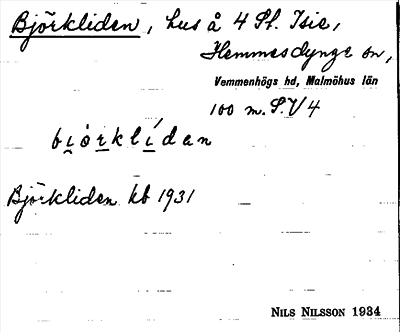 Björkliden, hus å 4 St. Isie,
Hemmesdynge sn,
Vemmenhögs hd, Malmöhus län
100 m. S.V 4
bi̯ö́rklídan
Björkliden kb 1931
NILS NILSSON 1934